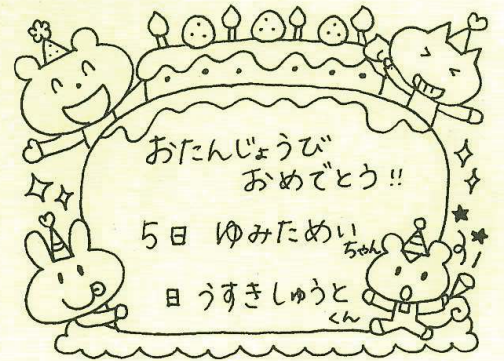 おたんじょうび
おめでとう!!
5日 ゆみためいちゃん
日 うすきしゅうとくん